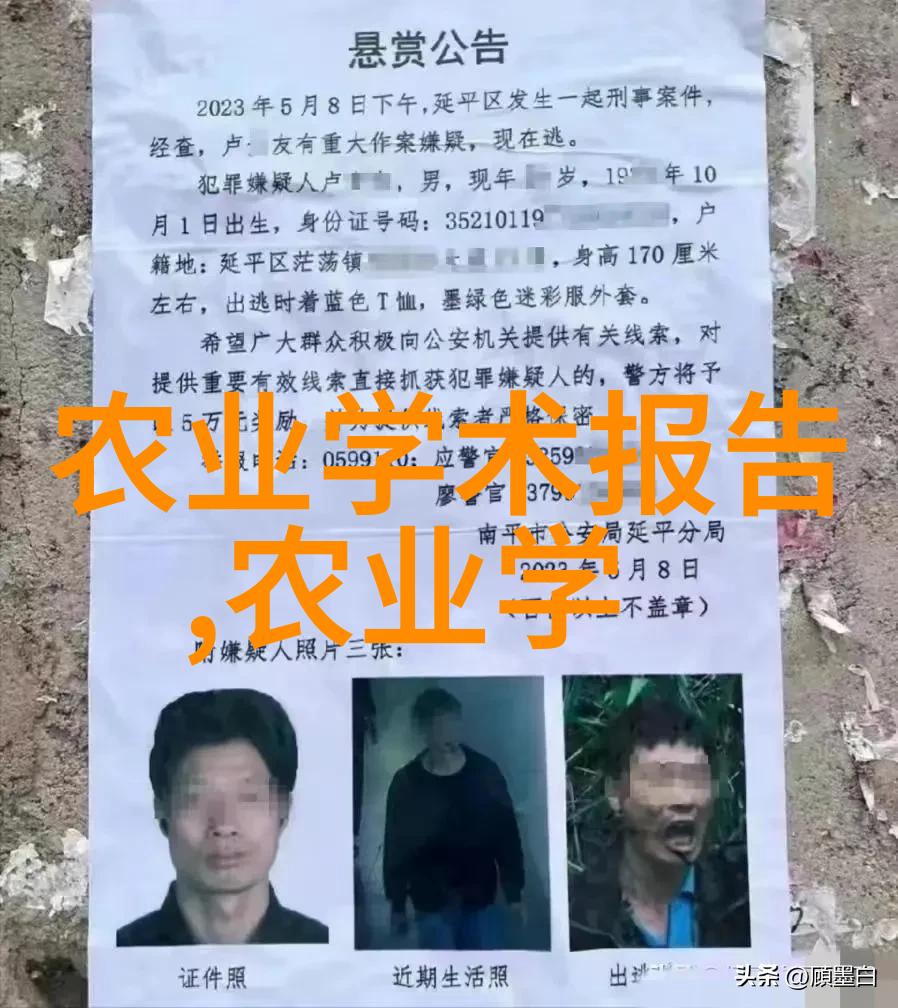 悬赏公告
2023年5月8日下午,延平区发生一起刑事案件,
经查,卢 友有重大作案嫌疑,现在逃。
犯罪嫌疑人卢 ,男,现年 岁,19 年10
月1日出生,身份证号码:35210119 ,户
籍地:延平区茫荡镇 ,身高170厘米
左右,出逃时着蓝色T恤,墨绿色迷彩服外套。
希望广大群众积极向公安机关提供有关线索,对
提供重要有效线索直接抓获犯罪嫌疑人的,警方将予
5万元奖励 线索者严格保密
农业学术报告
:0599110;应警官 359
廖警官 379
南平市公安局延平分局
,农业学
2023年5月8日
不盖章)
附嫌疑人照片三张:
证件照
近期生活照
出逃
头条 @顾墨白